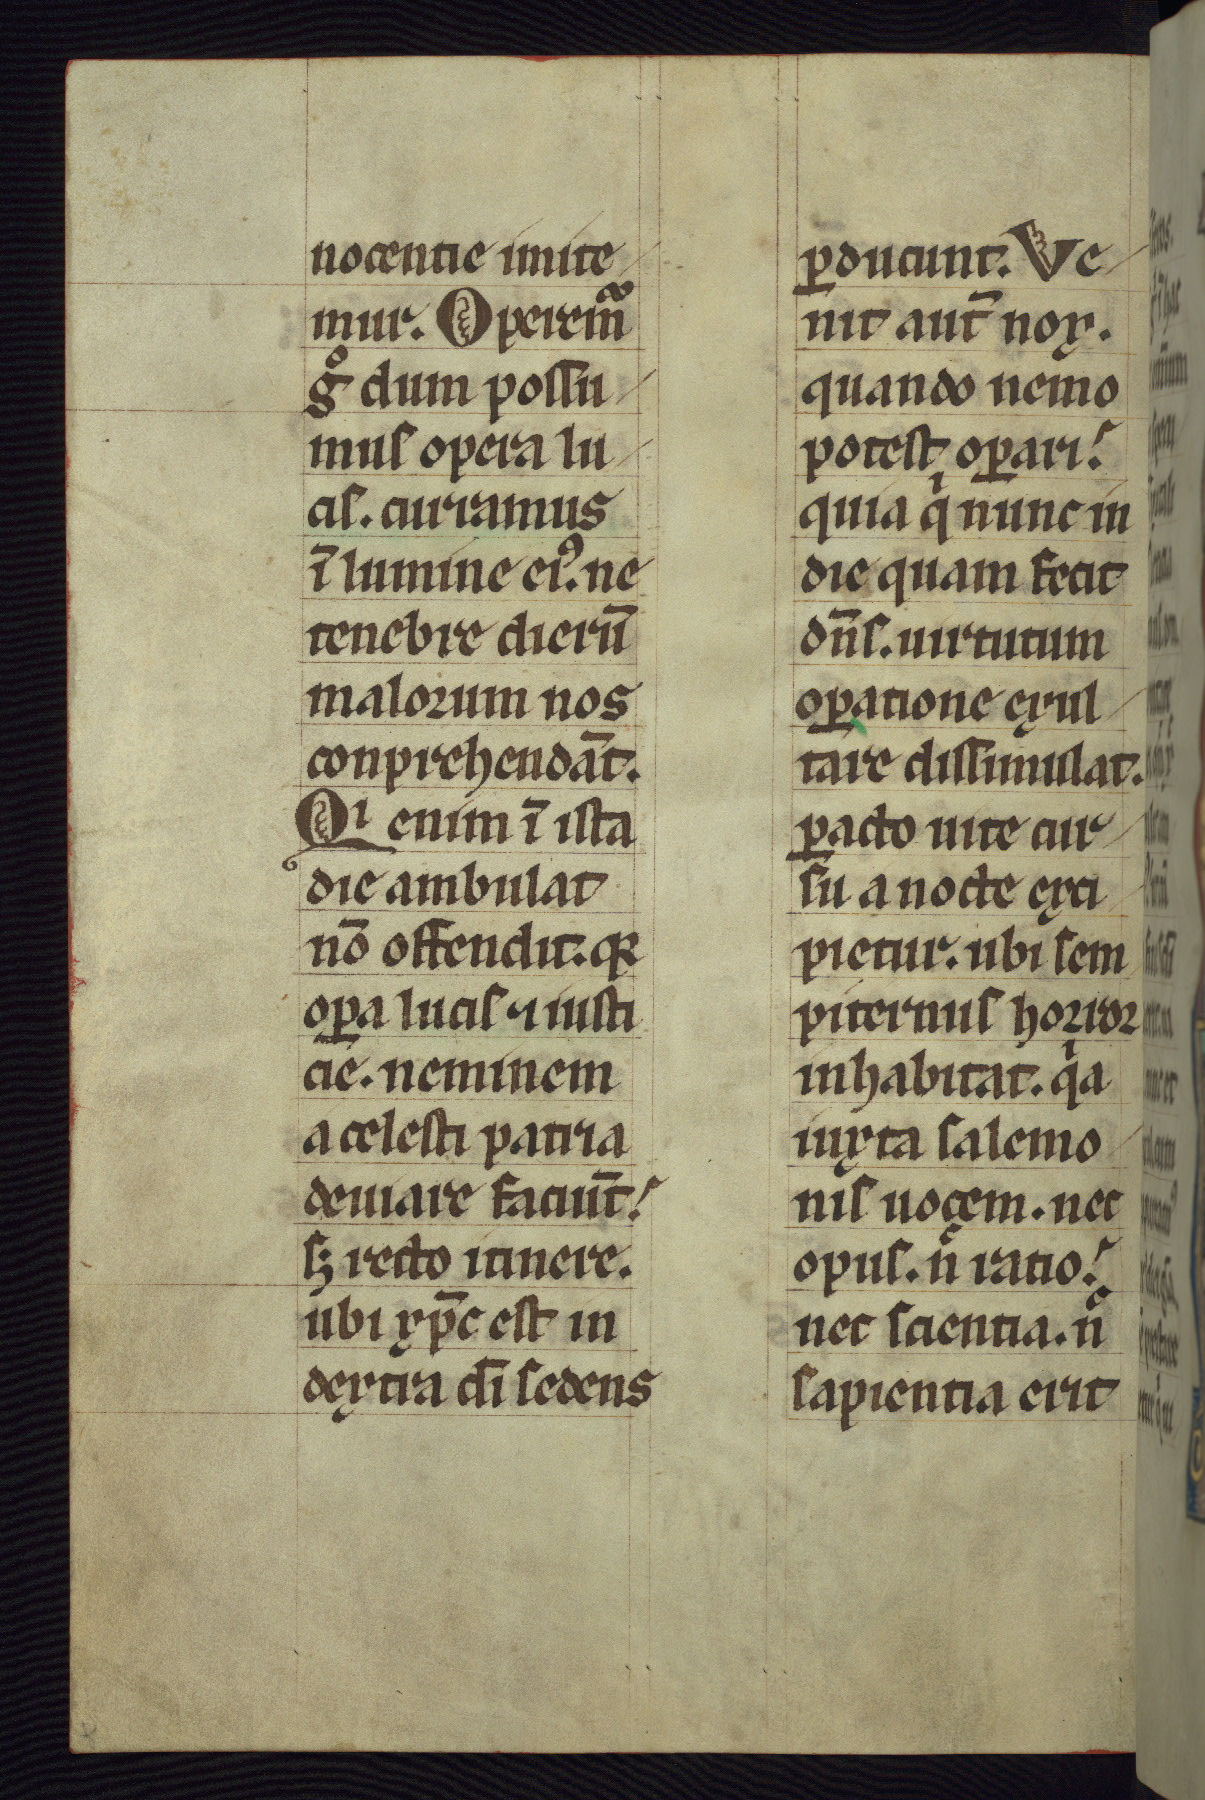 nocentie imite
mur. Operem᷑
gͦ dum possu
mus opera lu
cis. curramus
ī lumine eiꝰ. ne
tenebre dierū
malorum nos
conprehendāt.
Qi enim ī ista
die ambulat
nō offendit. qꝛ
oꝑa lucis ⁊ iusti
cie. neminem
a celesti patria
deuiare faciūt.
sꝫ recto itinere.
ubi xp̄c est in
dextra dī sedens
ꝑducunt. Ve
nit aut̄ nox.
quando nemo
potest oꝑari.
quia qͥ nunc in
die quam fecit
dn̄s. uirtutum
oꝑatione exul
tare dissimulat.
ꝑacto uite cur
su a nocte exci
pietur. ubi sem
piternus horror
inhabitat. qͥa
iuxta salemo
nis uocem. nec
opus. nͨ ratio.
nec scientia. nͨ
sapientia erit